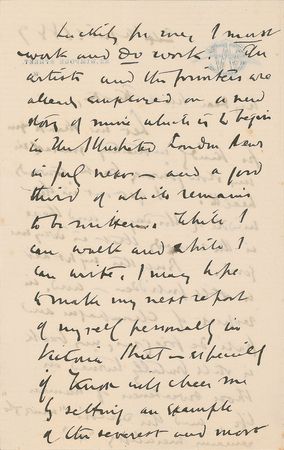 Luckily for me, I must
work and Do work. The
artists and the printers are
already employed on a new
story of mine which is to begin
in the Illustrated London News
in July next — and a good
third of which remains
to be written. While I
can walk and while I
can write, I may hope
to make my next report
of myself personally in
Victoria Street — especially
if will cheer me
by setting an example
of the severest and most